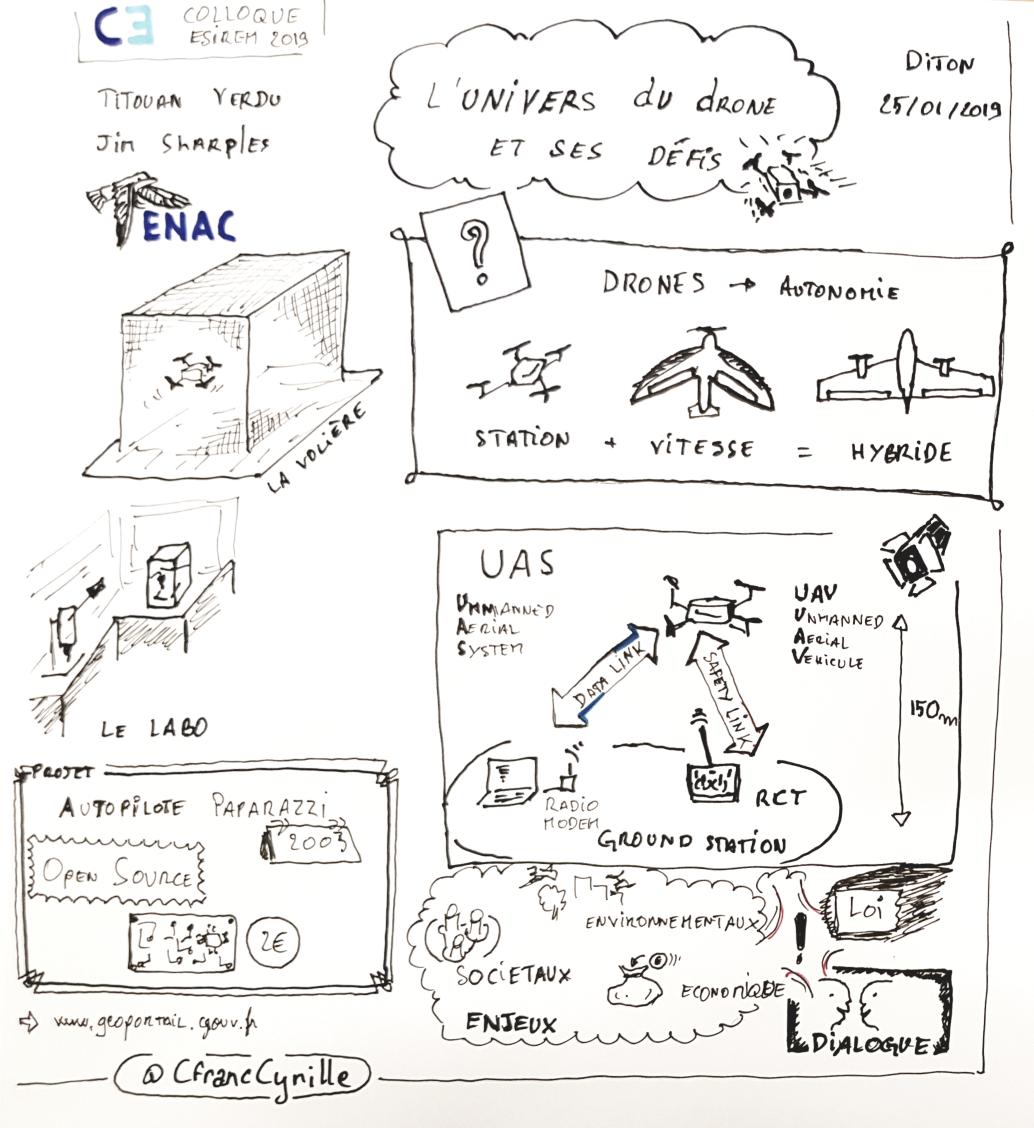 C3 COLLOQUE
ESIREM 2019
TITOUAN VERDU
Jim SHARPLES
ENAC
L'UNIVERS du drone
ET SES DÉFIS
DiJON
25/01/2019
?
DRONES → AUTONOMIE
STATION + VITESSE = HYBRIDE
LA VOLIÈRE
LE LABO
UAS
UNMANNED
AERIAL
SYSTEM
UAV
UNMANNED
AERIAL
VEHICULE
DATA LINK
SAFETY LINK
150m
RADIO
MODEM
RCT
GROUND STATION
PROJET
AUTOPILOTE PAPARAZZI
2003
OPEN SOURCE
2€
⇨ www.geoportail.gouv.fr
ENVIRONNEMENTAUX
SOCIETAUX
ECONOMIQUE
ENJEUX
!
Loi
DiALOGUE
@CfrancCyrille